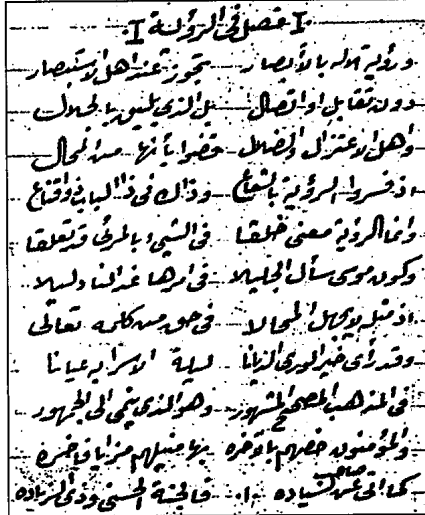 فصل في الرؤية
ورؤية الإله بالأبصار تجوز عند اهل الاستبصار
دون تقابل او اتصال بل الذي يليق بالجلال
وأهل الاعتزال والضلال قضوا بأنها من المحال
اذ فسروا الرؤية بالشعاع وذاك في ذا الباب ذو اقناع
وانما الرؤية معنى خلقا في الشيء بالمرئي قد تعلقا
وكون موسى سأل الجليلا في امرها غدا لنا دليلا
اذ مثله لا يجهل المحالا في حق من كلمه تعالى
وقد رأى خير الورى الديانا ليلة الاسراء عيانا
في المذهب المصحح المشهور وهو الذي ينمى الى الجمهور
والمؤمنون خصهم بالآخره بها منيلهم مزايا فاخره
كما اتى عن صاحب السياده فالجنة الحسنى وذي الزياده